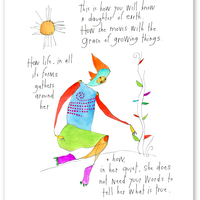 This is how you will know
a daughter of earth.
How she moves with the
grace of growing things.
How life, in all
its forms
gathers
around
her
& how
in her quiet, she does
not need your words to
tell her what is true.